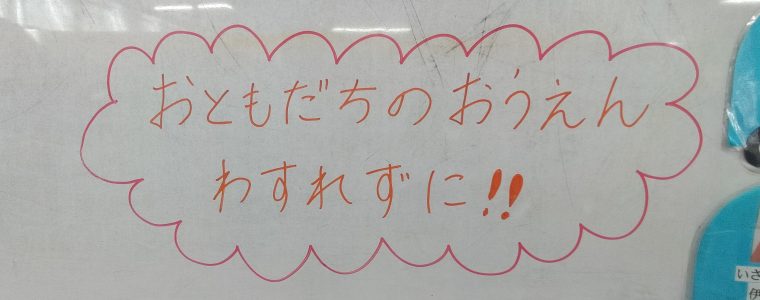 おともだちのおうえん
わすれずに!!
いさ
伊